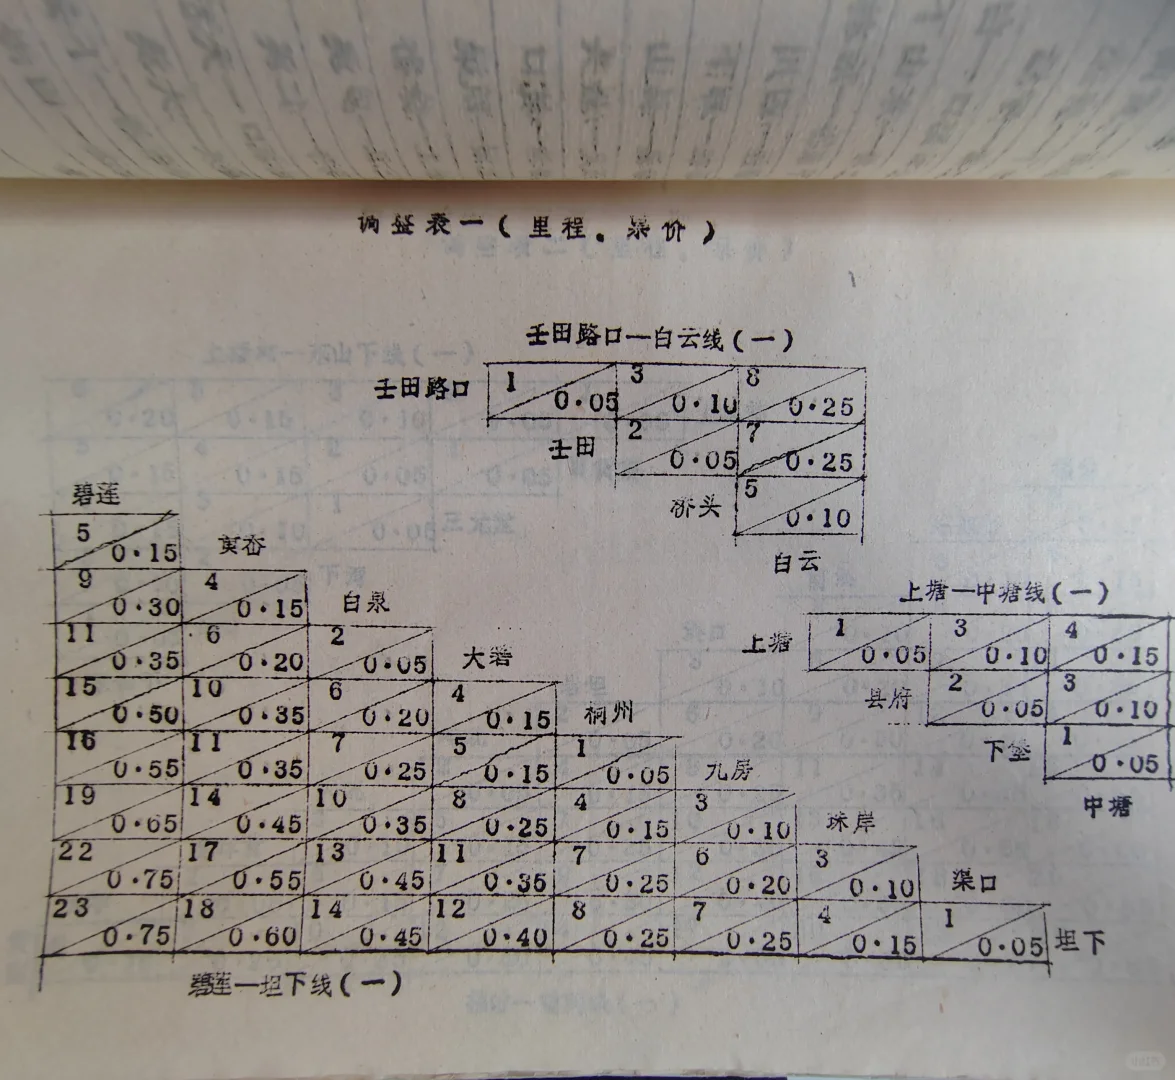 调整表一(里程.票价)
壬田路口—白云线(一)
壬田路口 1 0.05 3 0.10 8 0.25
壬田 2 0.05 7 0.25
桥头 5 0.10
白云
碧莲
5 0.15 黄岙
9 0.30 4 0.15 白泉
11 0.35 6 0.20 2 0.05 大碧
15 0.50 10 0.35 6 0.20 4 0.15 桐州
16 0.55 11 0.35 7 0.25 5 0.15 1 0.05 九房
19 0.65 14 0.45 10 0.35 8 0.25 4 0.15 3 0.10 珠岸
22 0.75 17 0.55 13 0.45 11 0.35 7 0.25 6 0.20 3 0.10 渠口
23 0.75 18 0.60 14 0.45 12 0.40 8 0.25 7 0.25 4 0.15 1 0.05 坦下
碧莲—坦下线(一)
上塘—中塘线(一)
上塘 1 0.05 3 0.10 4 0.15
县府 2 0.05 3 0.10
下堡 1 0.05
中塘